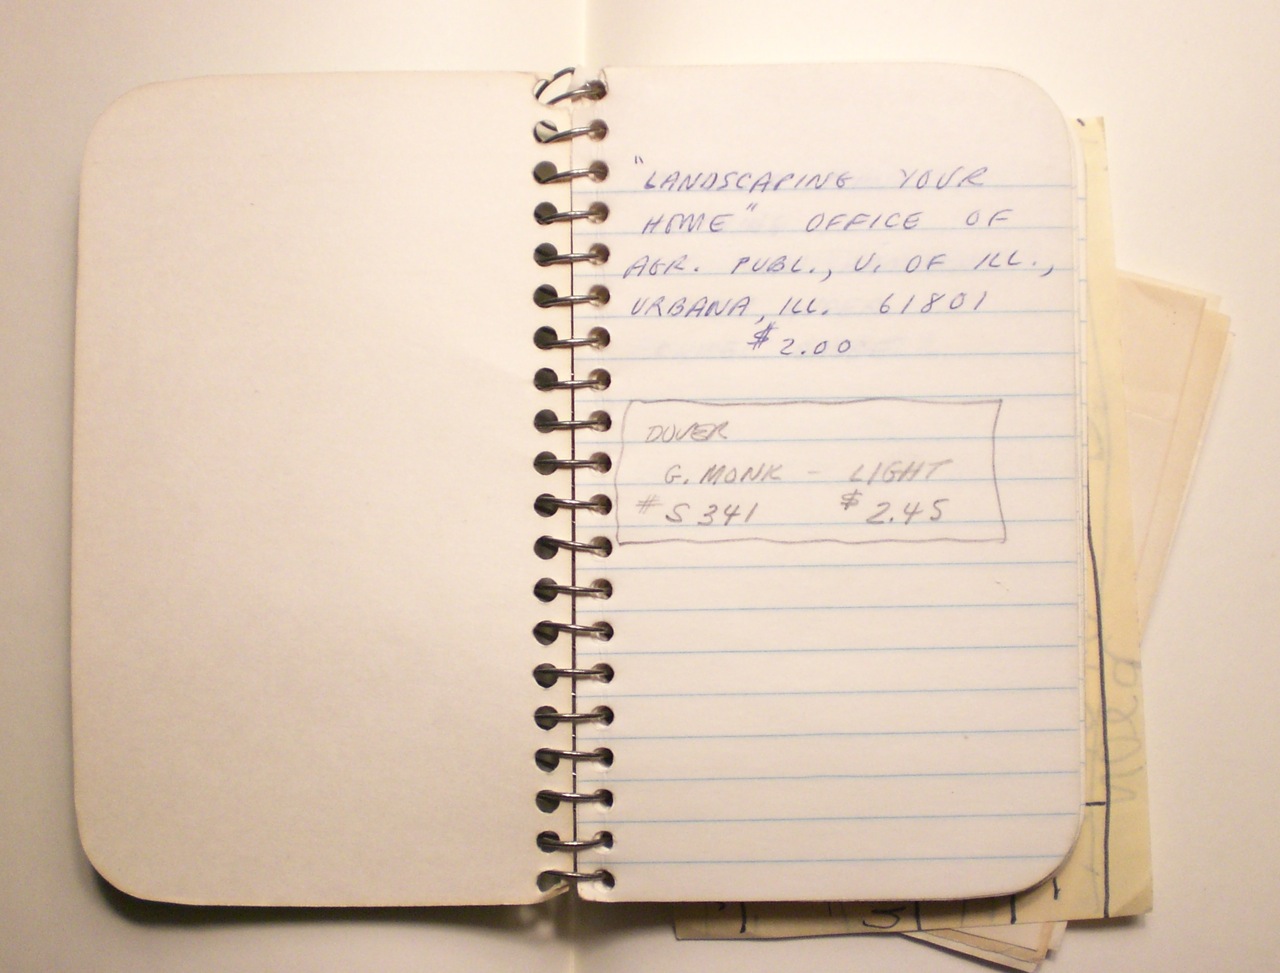 "LANDSCAPING YOUR
HOME" OFFICE OF
AGR. PUBL., U. OF ILL.,
URBANA, ILL. 61801
$2.00
DOVER
G. MONK - LIGHT
#S341 $2.45